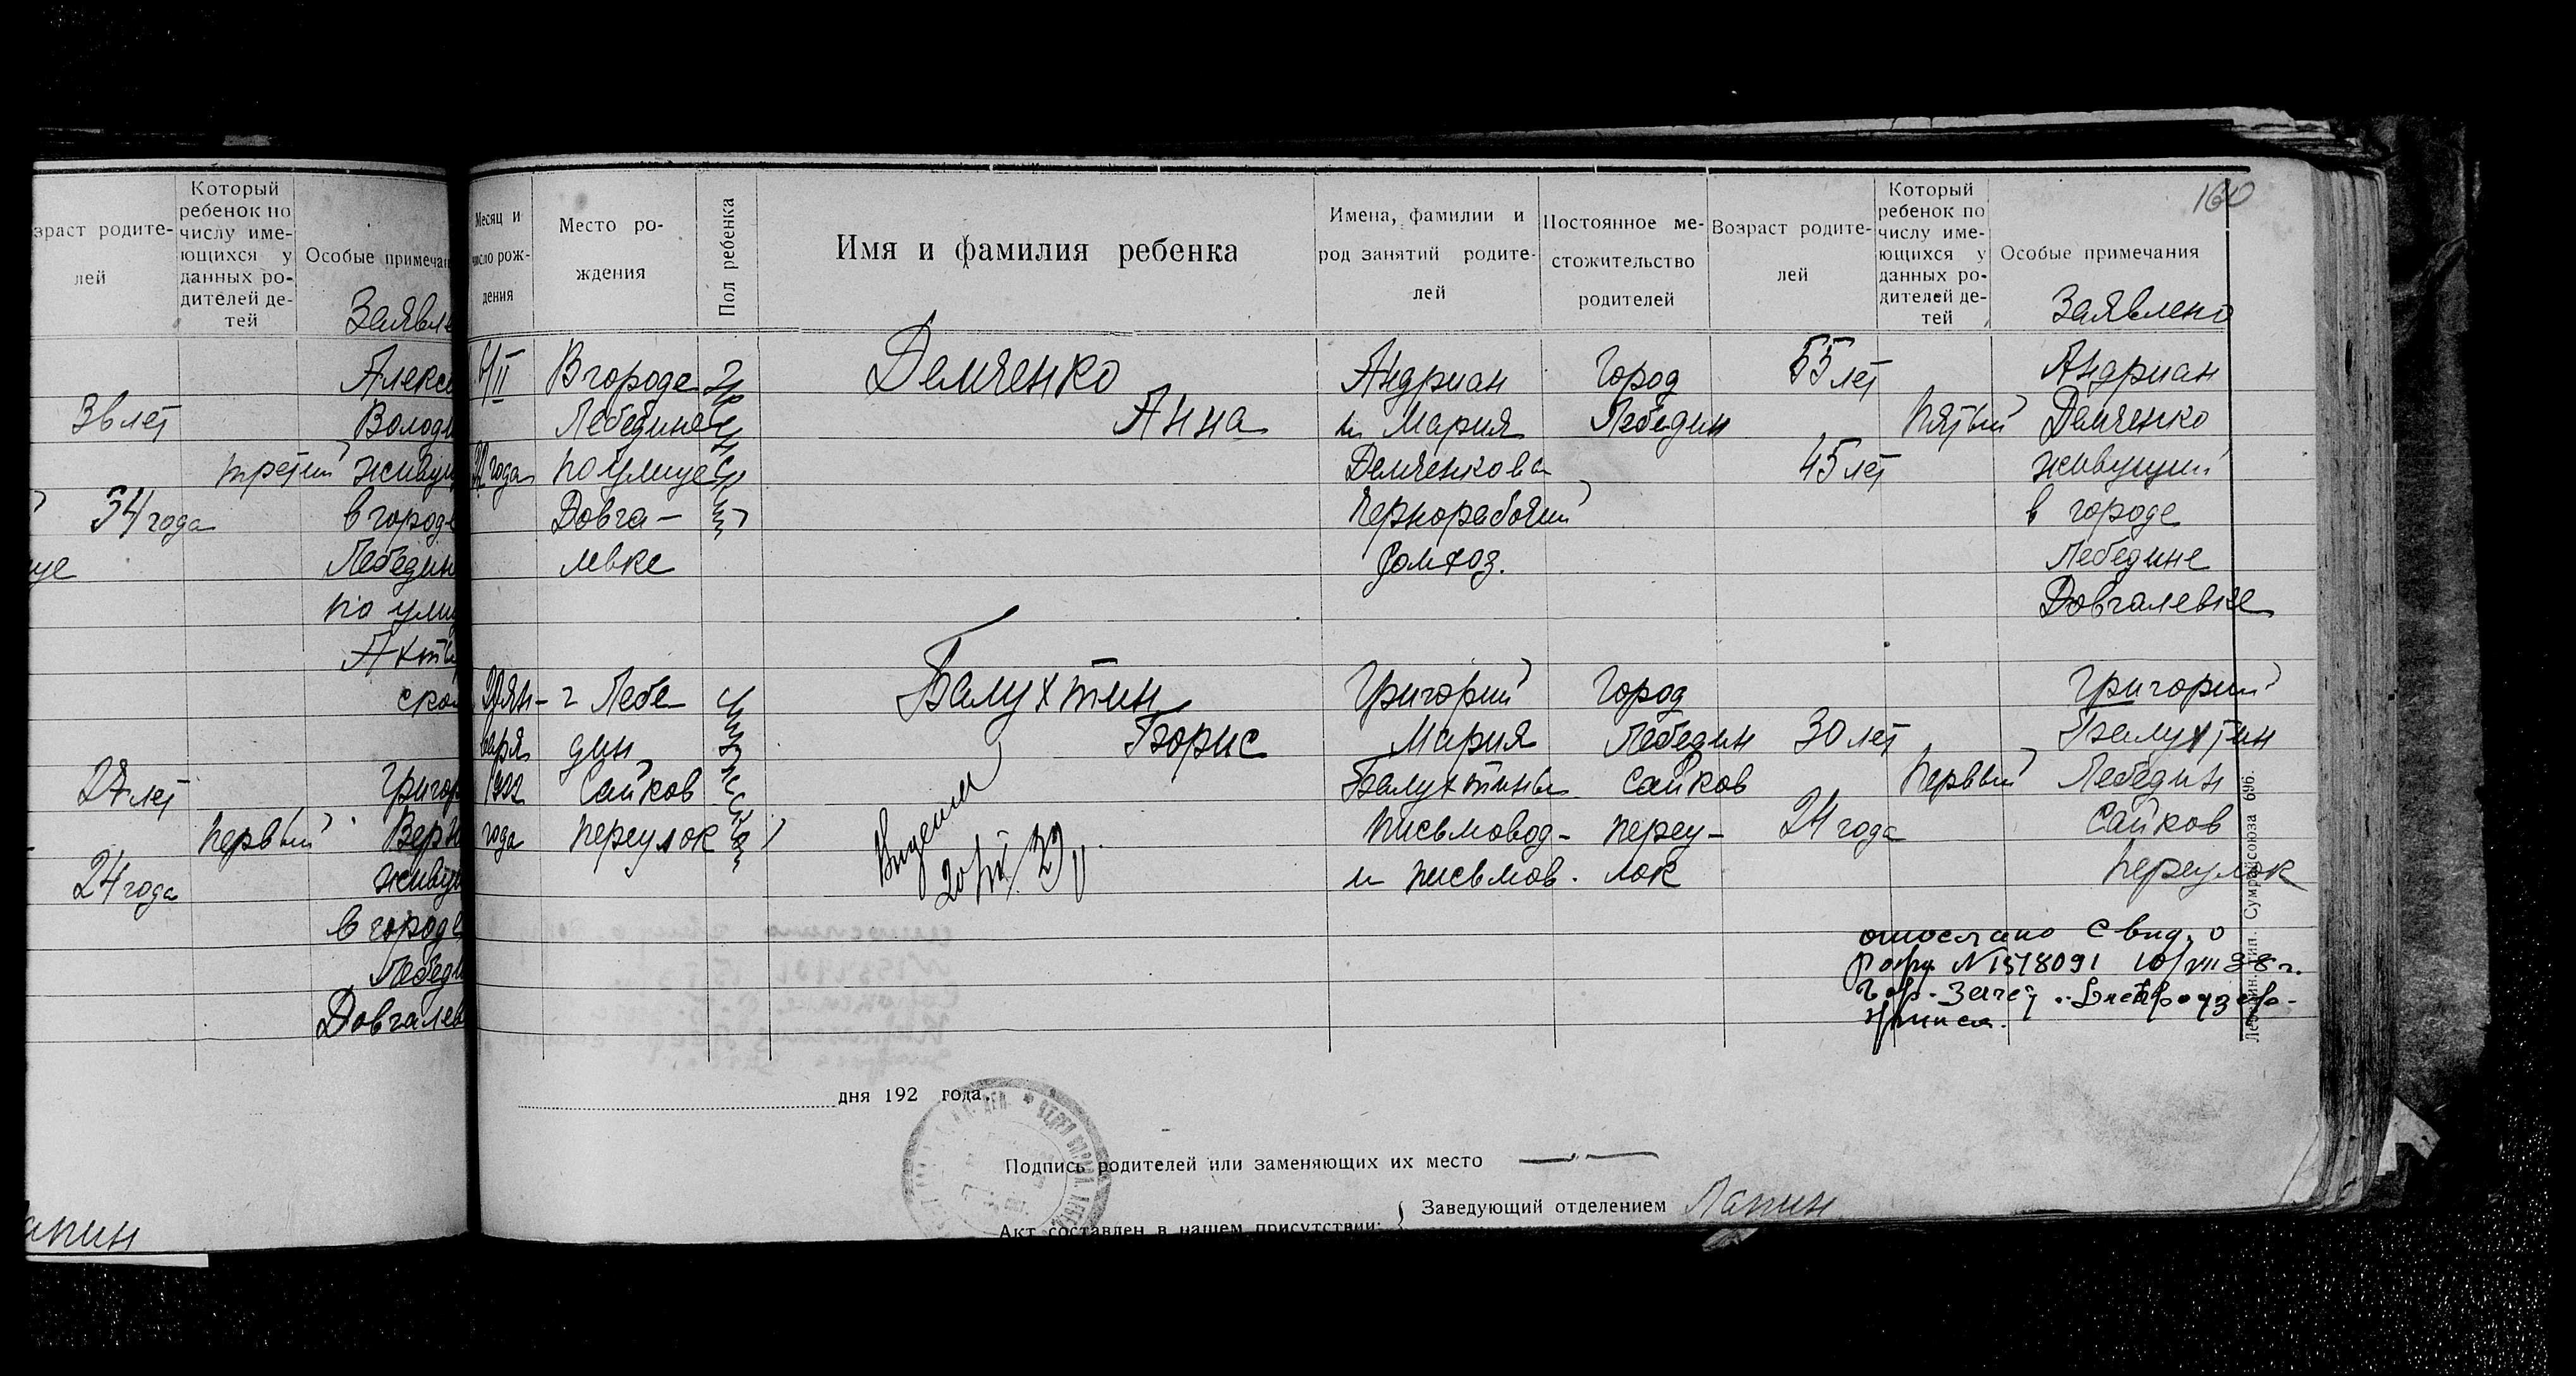 160
зраст родите-
лей
Который
ребенок по
числу име-
ющихся у
данных ро-
дителей де-
тей
Особые примечан
Заявле
Алекс
36 лет
Володи
третий живущ
34 года
в городе
ице
Лебедин
по улиц
Акти
ской
27 лет
Григор
первый
24 года
живу
в городе
Лебеди
Довгалев
апин
Месяц и
число рож-
дения
Место ро-
ждения
Пол ребенка
Имя и фамилия ребенка
Имена, фамилии и
род занятий родите-
лей
Постоянное ме-
стожительство
родителей
Возраст родите-
лей
Который
ребенок по
числу име-
ющихся у
данных ро-
дителей де-
тей
Особые примечания
Заявлено
/II
22 года
В городе
Лебедине
по улице
Довга-
левке
женский
Демченко
Анна
Андриан
и Мария
Демченкова
Чернорабочий
домхоз.
Город
Лебедин
55 лет
45 лет
Пятый
Андриан
Демченко
живущий
в городе
Лебедине
Довгалевке
янв-
варя
1922
года
г Лебе
дин
Сайков
переулок
мужской
Балухтин
Борис
Выдана
Григорий
Мария
Балухтины
письмовод-
и письмов.
Город
Лебедин
Сайков
переу-
лок
30 лет
24 года
Первый
Григорий
Балухтин
Лебедин
Сайков
переулок
отослано свид. о
№ 1518091 10/VII 38 г.
дня 192 года.
Подпись родителей или заменяющих их место
Заведующий отделением Лапин
Акт составлен в нашем присутствии:
Лебедин. тип. Сумрайсоюза 696.